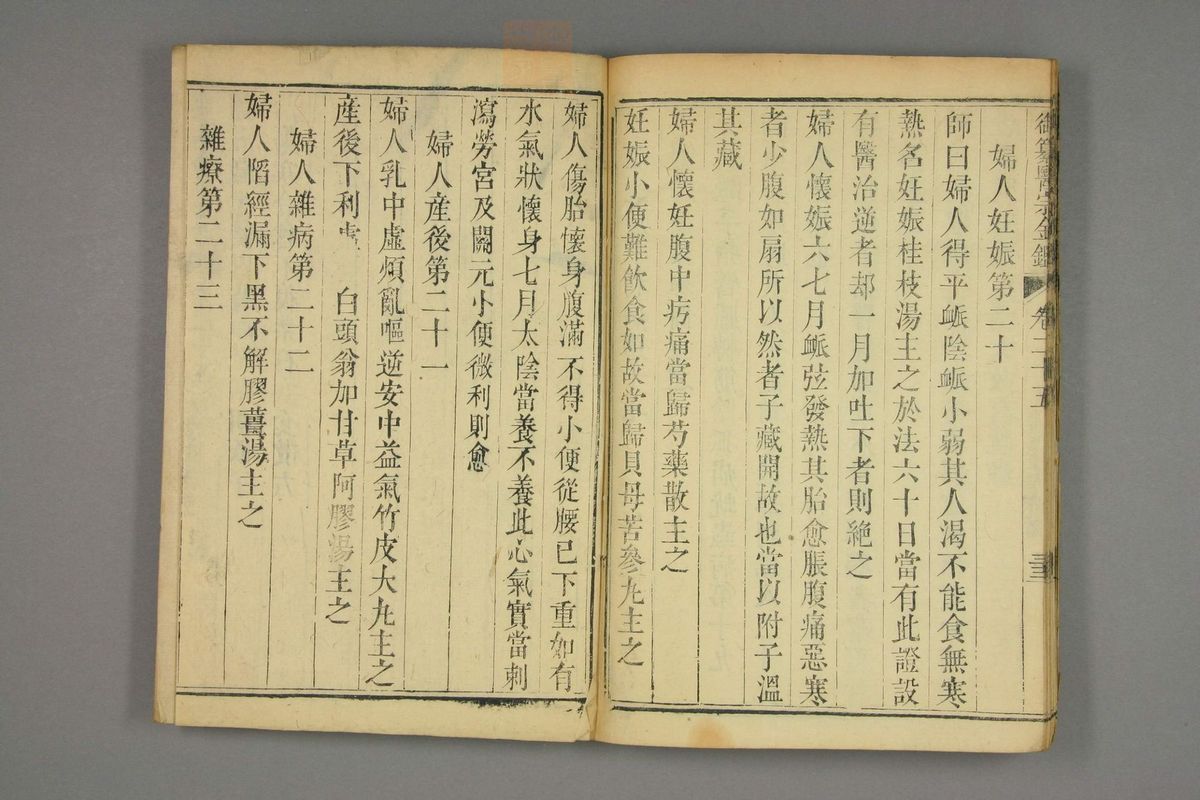 御纂醫宗金鑑 卷二十五
婦人妊娠第二十
師曰婦人得平脈陰脈小弱其人渴不能食無寒
熱名妊娠桂枝湯主之於法六十日當有此證設
有醫治逆者却一月加吐下者則絶之
婦人懷娠六七月脈弦發熱其胎愈脹腹痛惡寒
者少腹如扇所以然者子藏開故也當以附子溫
其藏
婦人懷妊腹中㽲痛當歸芍藥散主之
妊娠小便難飲食如故當歸貝母苦參丸主之
婦人傷胎懷身腹滿不得小便從腰已下重如有
水氣狀懷身七月太陰當養不養此心氣實當刺
瀉勞宮及關元小便微利則愈
婦人產後第二十一
婦人乳中虛煩亂嘔逆安中益氣竹皮大丸主之
產後下利虛 白頭翁加甘草阿膠湯主之
婦人雜病第二十二
婦人陷經漏下黑不解膠薑湯主之
雜療第二十三